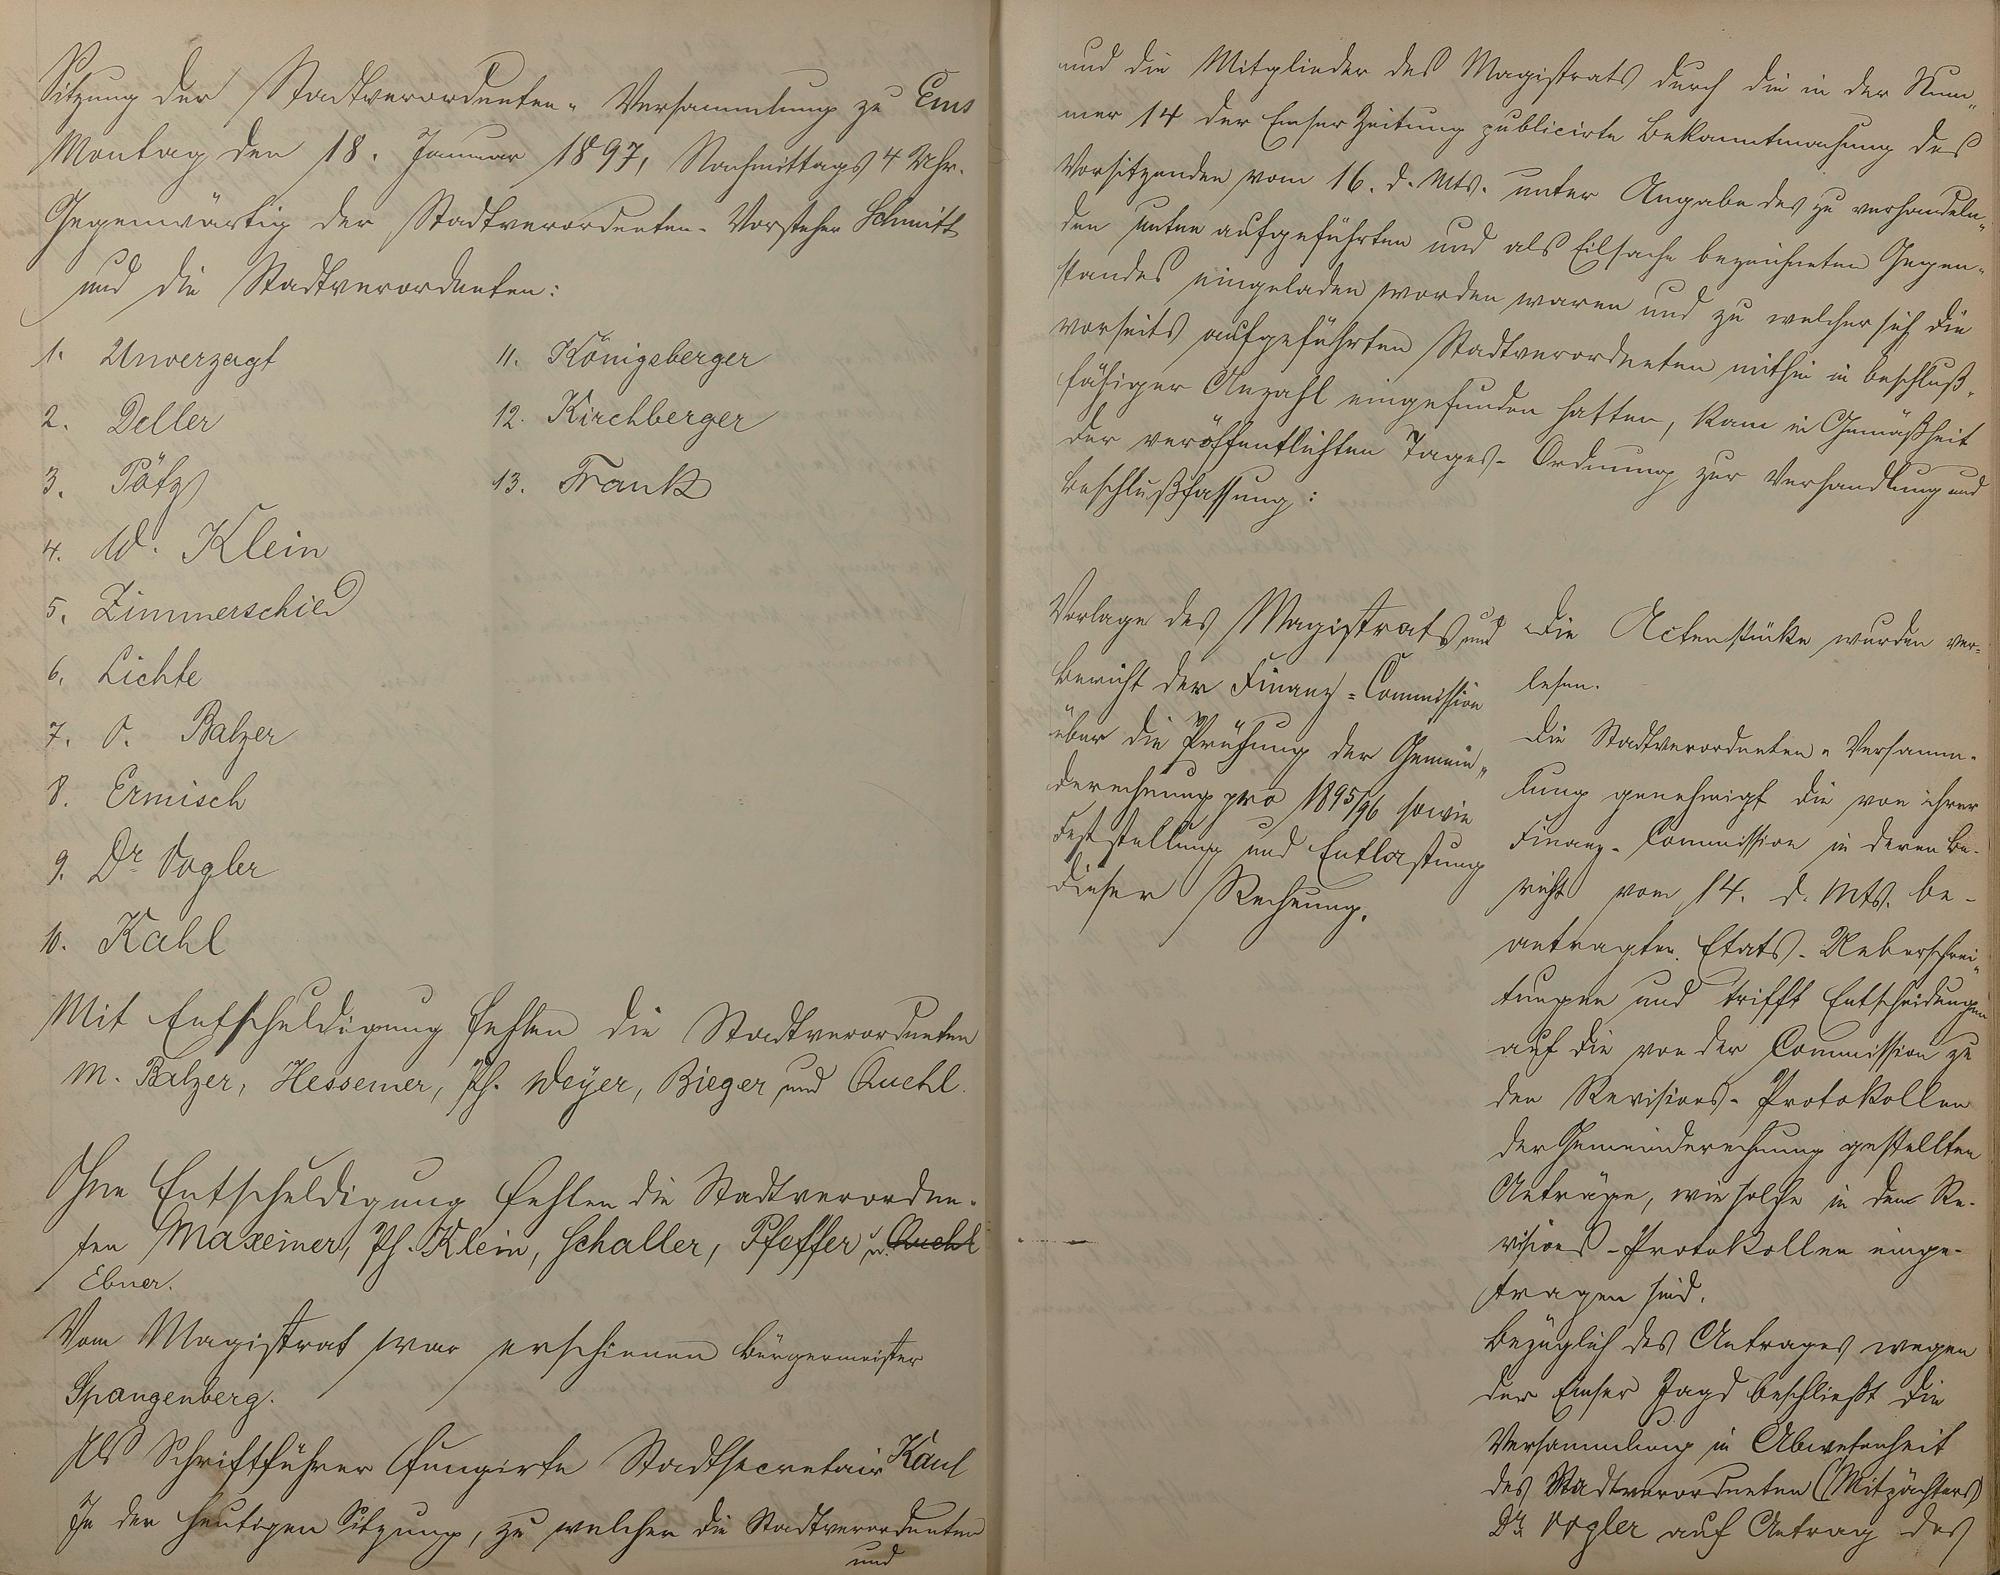 Sitzung der Stadtverordneten-Versammlung zu Ems
Montag den 18. Januar 1897, Nachmittags 4 Uhr.
Gegenwärtig der Stadtverordneten-Vorsteher Schmitt
und die Stadtverordneten:
1. Unverzagt
2. Deller
3. Pötz
4. W. Klein
5. Zimmerschied
6. Lichte
7. O. Balzer
8. Ermisch
9. Dr. Vogler
10. Kahl
11. Königsberger
12. Kirchberger
13. Frank
Mit Entschuldigung fehlen die Stadtverordneten
M. Balzer, Hessemer, Ph. Weyer, Bieger und Quehl.
Ohne Entschuldigung fehlen die Stadtverordne-
ten Maxeiner, Ph. Klein, Schaller, Pfeffer u. Quehl
Ebner.
Vom Magistrat war erschienen Bürgermeister
Spangenberg.
Als Schriftführer fungirte Stadtsecretair Kaul
In der heutigen Sitzung, zu welcher die Stadtverordneten
und
und die Mitglieder des Magistrats durch die in der Num-
mer 14 der Emser Zeitung publicirte Bekanntmachung des
Vorsitzenden vom 16. d. Mts. unter Angabe des zu verhandeln-
den unten aufgeführten und als Eilsache bezeichneten Gegen-
standes eingeladen worden waren und zu welcher sich die
vorseits aufgeführten Stadtverordneten mithin in beschluß-
fähiger Anzahl eingefunden hatten, kam in Gemäßheit
der veröffentlichten Tages-Ordnung zur Verhandlung und
Beschlußfassung:
Vorlage des Magistrats und
Bericht der Finanz-Commission
über die Prüfung der Gemein-
derechnung pro 1895/96 sowie
Feststellung und Entlastung
dieser Rechnung.
Die Actenstücke wurden ver-
lesen.
Die Stadtverordneten-Versamm-
lung genehmigt die von ihrer
Finanz-Commission in deren Be-
richt vom 14. d. Mts. be-
antragten Etats-Ueberschrei-
tungen und trifft Entscheidungen
auf die von der Commission zu
den Revisions-Protokollen
der Gemeinderechnung gestellten
Anträge, wie solche in dem Re-
visions-Protokollen einge-
tragen sind.
Bezüglich des Antrages wegen
der Emser Jagd beschließt die
Versammlung in Abwesenheit
des Stadtverordneten (Mitpächters)
Dr. Vogler auf Antrag des